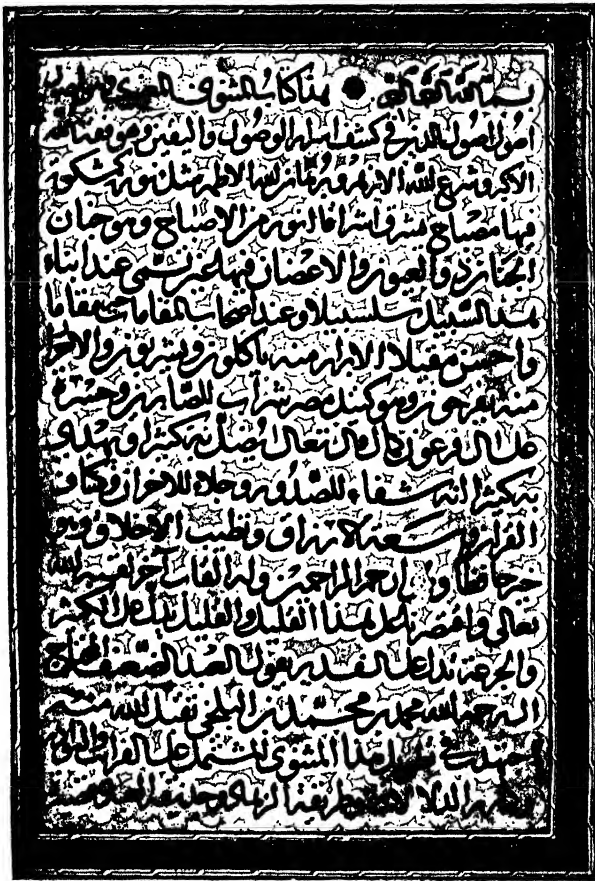 هذا كتاب المثنوي
اصول اصول الدين في كشف اسرار الوصول واليقين وهو فقه الله
الاكبر وشرع الله الازهر وبرهان الله الاظهر مثل نوره كمشكوة
فيها مصباح يشرق اشراقا انور من الاصباح وهو جنان
الجنان ذو العيون والاغصان فيها عين تسمى عند ابناء
هذا السبيل سلسبيلا وعند اصحاب المقامات خير مقاما
واحسن مقيلا الابرار منه ياكلون ويشربون والاحرار
منه يفرحون وهو كنيل مصر شراب للصابرين وحسرة
على ال فرعون كما قال تعالى يضل به كثيرا ويهدي
به كثيرا انه شفاء للصدور وجلاء للاحزان وكشاف
القران وسعة الارزاق وتطييب الاخلاق وهو
خير حافظا وهو ارحم الراحمين وله القاب اخر لقبه الله
تعالى واقتصرنا على هذا القليل والقليل يدل على الكثير
والجرعة تدل على الغدير يقول العبد الضعيف المحتاج
الى رحمة الله محمد بن محمد البلخي تقبل الله منه
اجتهدت في تطويل هذا المثنوي المشتمل على الغرائب والنوادر
وغرر الدلالات وطريقة الزهاد